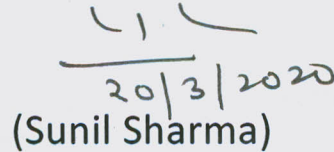 20/3/2020
(Sunil Sharma)